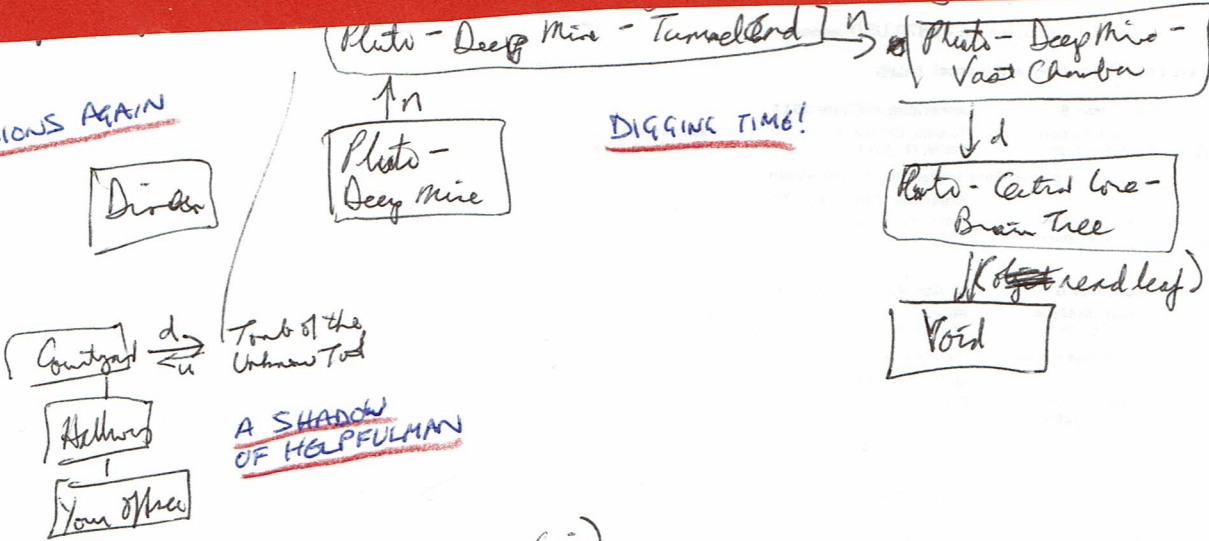 Pluto - Deep Mine - Tunnel End
n
Pluto - Deep Mine -
Vast Chamber
IONS AGAIN
n
Pluto -
Deep Mine
DIGGING TIME!
d
Pluto - Central Core -
Brain Tree
(read leaf)
Void
Courtyard
d
u
Tomb of the
Unknown Tool
Hallway
A SHADOW
OF HELPFULMAN
Your Office